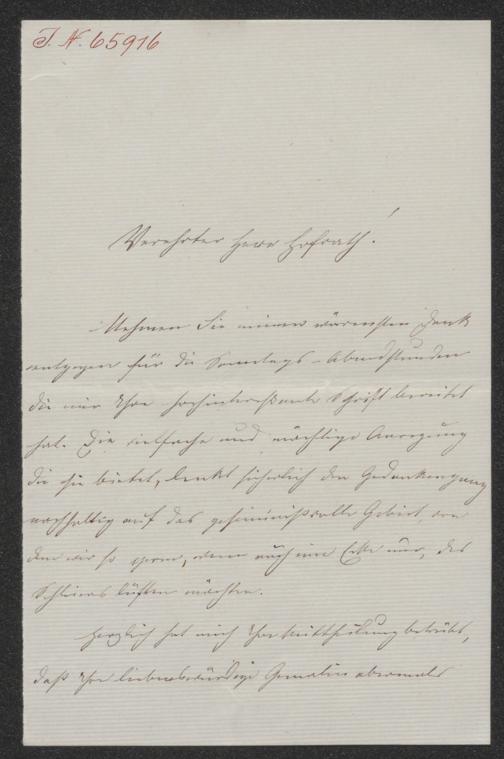 J. N. 65916
Verehrter Herr Hofrath!
Nehmen Sie meinen wärmsten Dank
entgegen für die Sonntags-Abendstunden
die mir Ihre hochinteressante Schrift bereitet
hat. Die vielfache und mächtige Anregung
die sie bietet, lenkt sicherlich den Gedankengang
nachhaltig auf das geheimnißvolle Gebiet von
dem wir so gerne, wenn auch nur Ecke nur, des
Schleiers lüften möchten.
Herzlich hat mich Ihre Mittheilung betrübt,
daß Ihre liebenswürdige Gemalin abermals